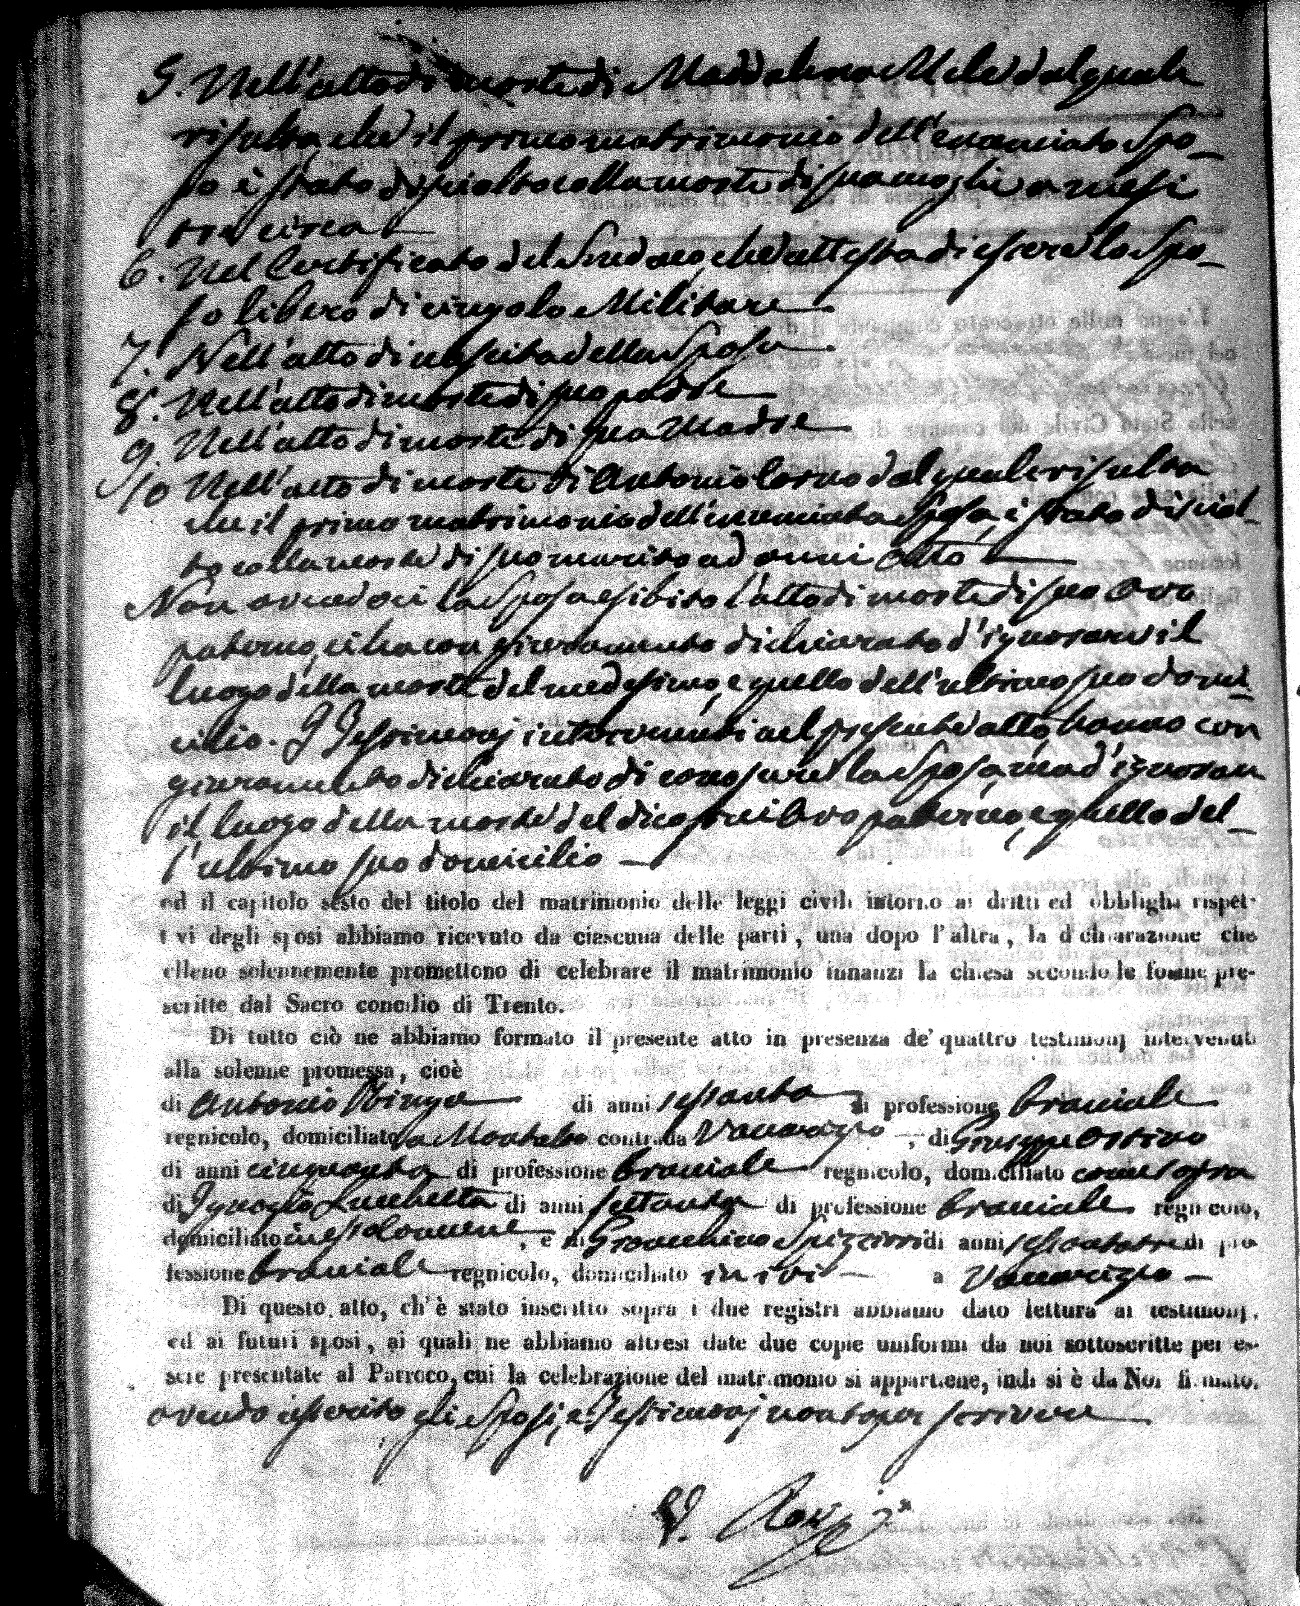 5. Nell'atto di morte di Maddalena Mele dal quale
risulta, che il primo matrimonio dell'enunciato Spo_
so è stato disciolto colla morte di sua moglie a mesi
tre circa
6. Nel Certificato del Sindaco, che attesta di essere lo Spo_
so libero di cingolo Militare
7. Nell'atto di nascita della Sposa
8. Nell'atto di morte di suo padre
9. Nell'atto di morte di sua Madre
10 Nell'atto di morte di Antonio dal quale risulta
che il primo matrimonio dell'enunciata Sposa, è stato disciol_
to colla morte di suo marito ad anni otto
Non avendoci la Sposa esibito l'atto di morte di suo Avo
paterno, ci ha con giuramento dichiarato d'ignorare il
luogo della morte del medesimo, e quello dell'ultimo suo domi_
cilio. I Testimonj intervenuti nel presente atto hanno con
giuramento dichiarato di conoscere la Sposa, ma d'ignorare
il luogo della morte del di Avo paterno, e quello del_
l'ultimo suo domicilio
ed il capitolo sesto del titolo del matrimonio delle leggi civili intorno ai dritti ed obblighi rispet-
tivi degli sposi abbiamo ricevuto da ciascuna delle parti, una dopo l'altra, la dichiarazione che
elleno solennemente promettono di celebrare il matrimonio innanzi la chiesa secondo le forme pre-
scritte dal Sacro concilio di Trento.
Di tutto ciò ne abbiamo formato il presente atto in presenza de' quattro testimonj intervenuti
alla solenne promessa, cioè
di Antonio di anni sessanta di professione bracciale
regnicolo, domiciliato a Montalto contrada Vaccarizzo, di Giuseppe
di anni cinquanta di professione bracciale regnicolo, domiciliato come sopra
di Ignazio Lucchetta di anni settanta di professione bracciale regnicolo,
domiciliato , e di Gioacchino Spizzirri di anni sessantatre di pro-
fessione bracciale regnicolo, domiciliato ivi a Vaccarizzo
Di questo atto, ch'è stato inscritto sopra i due registri abbiamo dato lettura ai testimonj,
ed ai futuri sposi, ai quali ne abbiamo altresì date due copie uniformi da noi sottoscritte per es-
sere presentate al Parroco, cui la celebrazione del matrimonio si appartiene, indi si è da Noi firmato,
avendo asserito gli Sposi, e Testimonj non saper scrivere